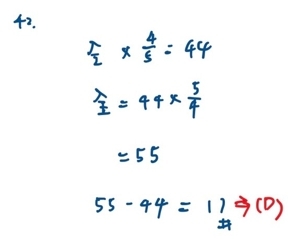 42.
× 4/5 = 44
= 44 × 5/4
= 55
55 - 44 = 11 ⇒ (D)